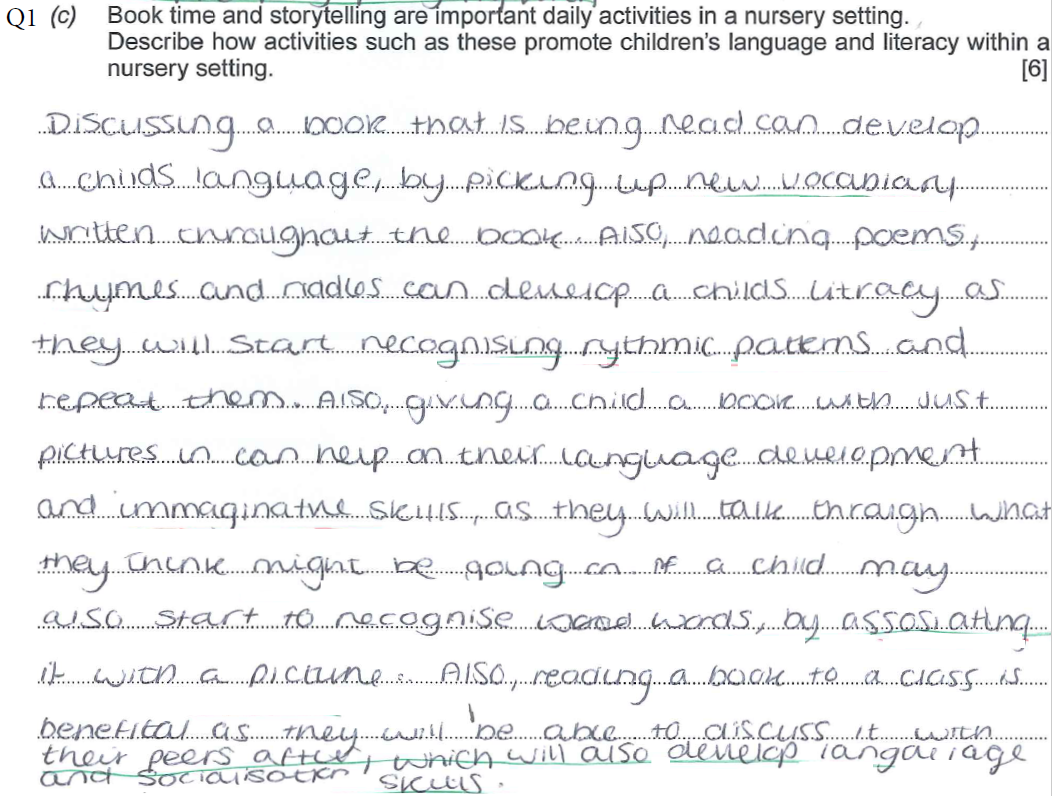 Q1 (c) Book time and storytelling are important daily activities in a nursery setting.
Describe how activities such as these promote children's language and literacy within a
nursery setting. [6]
Discussing a book that is being read can develop
a childs language, by picking up new vocablary
written throughout the book. Also, reading poems,
rhymes and riadles can develop a childs litracy as
they will start recognising rythmic patterns and
repeat them. Also, giving a child a book with just
pictures in can help on their language development
and immaginative skills, as they will talk through what
they think might be going on. A child may
also start to recognise words, by assosiating
it with a picture. Also, reading a book to a class is
benefital as they will be able to discuss it with
their peers after, which will also develop language
and socialisation skills.